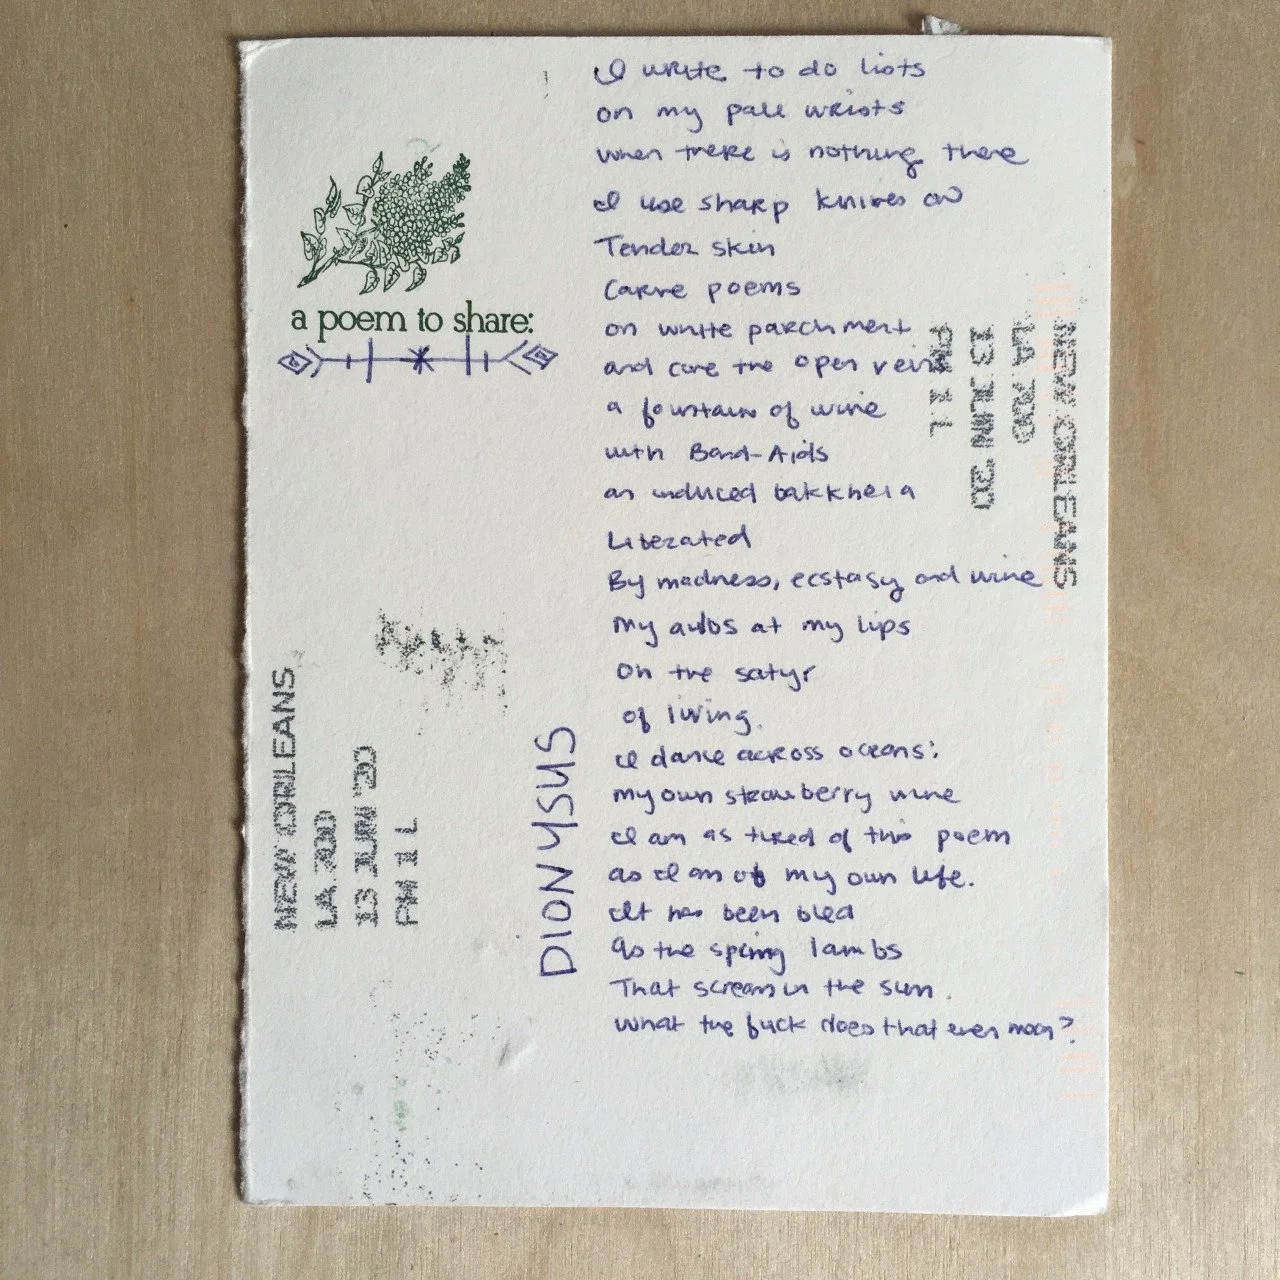 a poem to share:
DIONYSUS
I write to do lists
on my pale wrists
when there is nothing there
I use sharp knives on
Tender skin
Carve poems
on white parchment
and cure the open vein
a fountain of wine
with Band-Aids
an induced bakkheia
Liberated
By madness, ecstasy and wine
My aulos at my lips
Oh the satyr
of living.
I dance across oceans:
my own strawberry wine
I am as tired of this poem
as I am of my own life.
It has been bled
as the spring lambs
That scream in the sun.
What the fuck does that even mean?
NEW ORLEANS
LA 700
13 JUN '20
PM 1 L
NEW ORLEANS
LA 700
13 JUN '20
PM 1 L